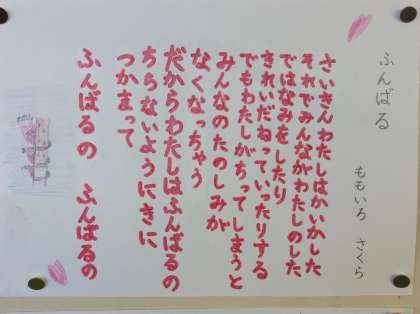 ふんばる
ももいろ さくら
さいきんわたしはかいかした
それでみんながわたしのした
ではなみをしたり
きれいだねっていったりする
でもわたしがちってしまうと
みんなのたのしみが
なくなっちゃう
だからわたしはふんばるの
ちらないようにきに
つかまって
ふんばるの ふんばるの